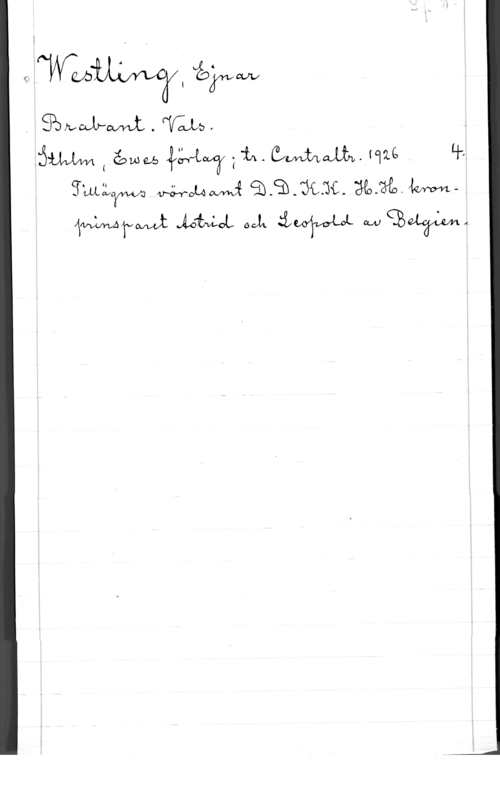 Westling, Ejnar
Brabant. Vals.
Sthlm, Ewes förlag; tr. Centraltr. 1926 4.
Tillägnas vördsamt D.D.K.K. H.H. kron-
prinsparet Astrid och Leopold av Belgien.